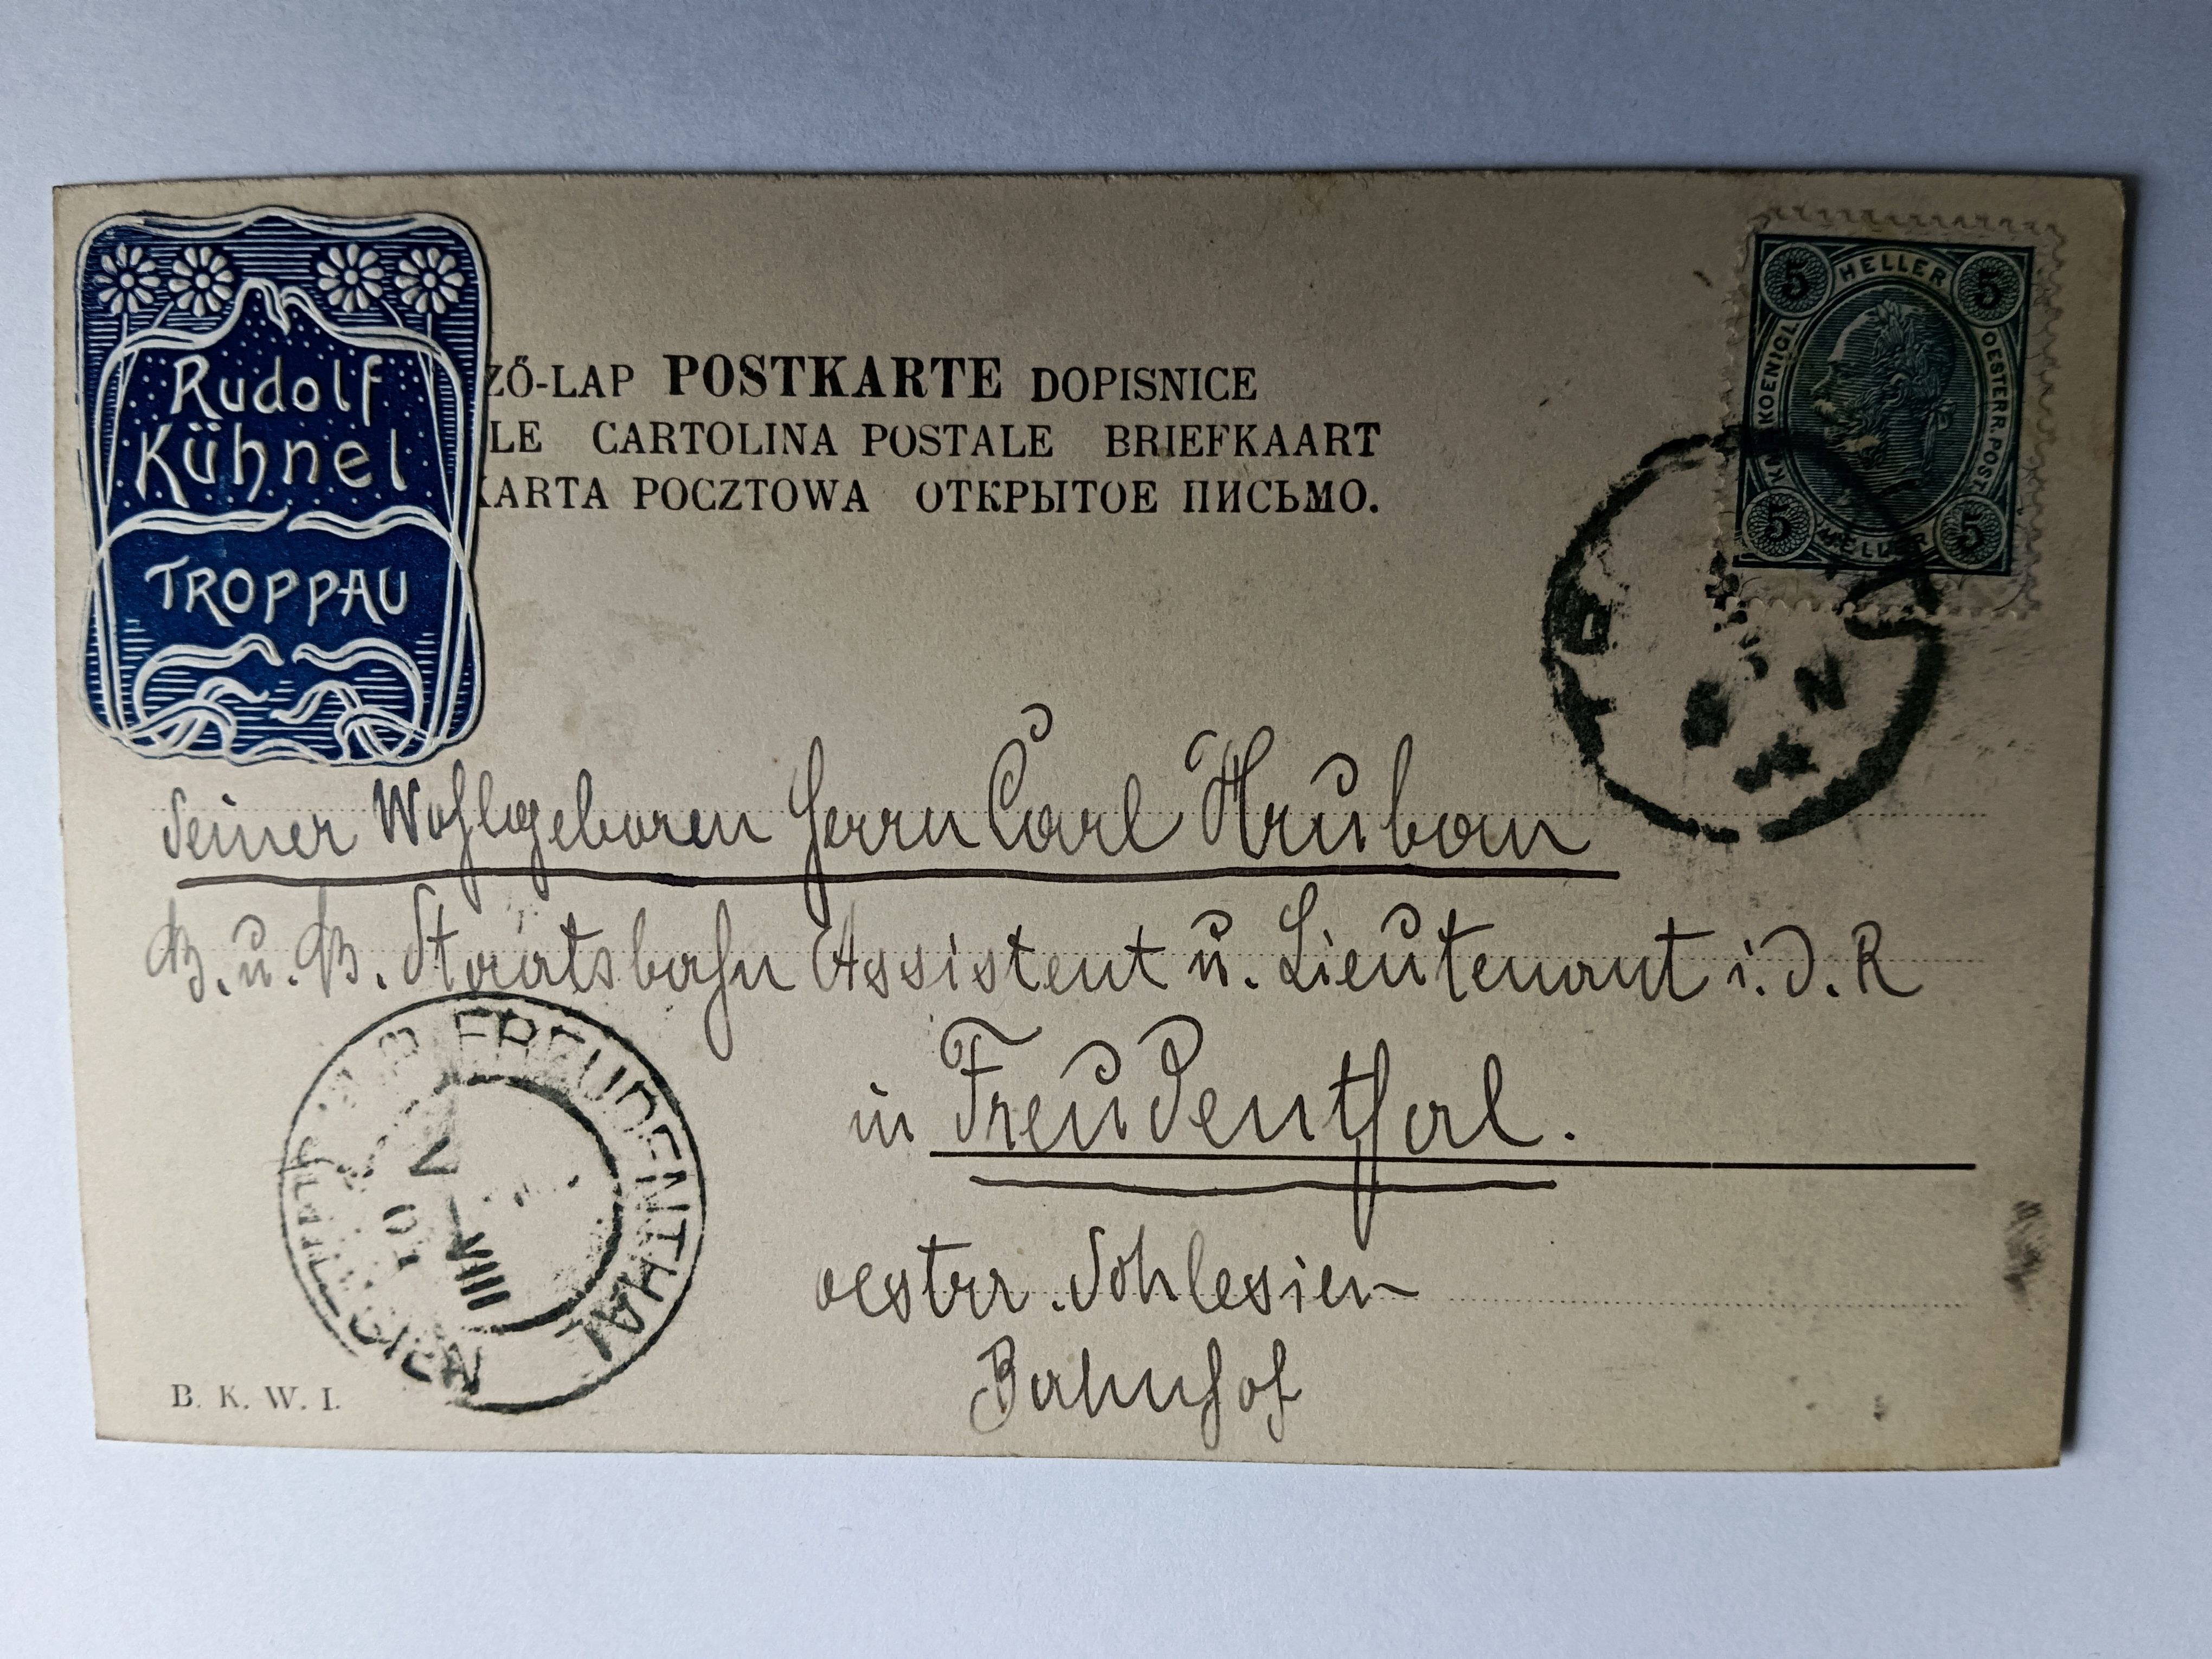 Rudolf
Kühnel
TROPPAU
ZŐ-LAP POSTKARTE DOPISNICE
LE CARTOLINA POSTALE BRIEFKAART
KARTA POCZTOWA ОТКРЫТОЕ ПИСЬМО.
5 HELLER 5
KOENIGL. OESTERR. POST
5 HELLER 5
Seiner Wohlgeboren Herrn Carl Hruban
K. u. K. Staatsbahn Assistent u. Lieutenant i. d. R
in Freudenthal.
oestrr. Schlesien
Bahnhof
FREUDENTHAL
VIII
01
B. K. W. I.